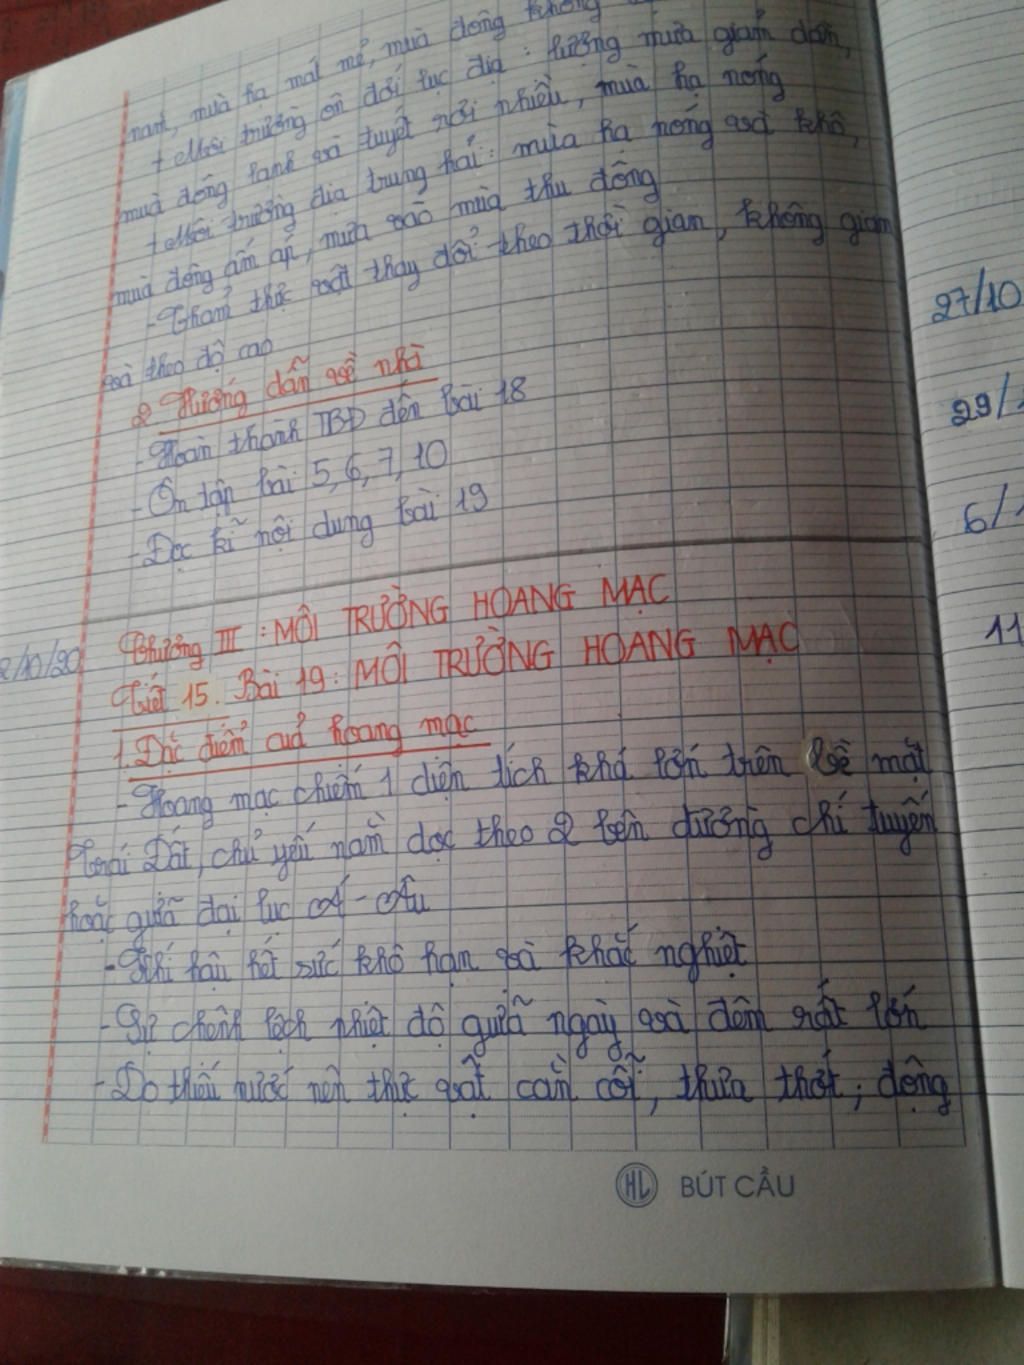 nam, mùa hạ mát mẻ, mùa đông không
+ Môi trường ôn đới lục địa: lượng mưa giảm dần,
mùa đông lạnh và tuyết rơi nhiều, mùa hạ nóng
+ Môi trường địa trung hải: mùa hạ nóng và khô,
mùa đông ấm áp, mưa vào mùa thu đông
- Thảm thực vật thay đổi theo thời gian, không gian
và theo độ cao
2 Hướng dẫn về nhà
- Hoàn thành TBĐ đến bài 18
- Ôn tập bài 5, 6, 7, 10
- Đọc kĩ nội dung bài 19
Chương III: MÔI TRƯỜNG HOANG MẠC
/10/20
Tiết 15. Bài 19: MÔI TRƯỜNG HOANG MẠC
1. Đặc điểm của hoang mạc
- Hoang mạc chiếm 1 diện tích khá lớn trên bề mặt
trái Đất, chủ yếu nằm dọc theo 2 bên đường chí tuyến
hoặc giữa đại lục Á - Âu
- Khí hậu hết sức khô hạn và khắc nghiệt
- Sự chênh lệch nhiệt độ giữa ngày và đêm rất lớn
- Do thiếu nước nên thực vật cằn cỗi, thưa thớt; động
HL BÚT CẦU
27/10
29/
6/
11